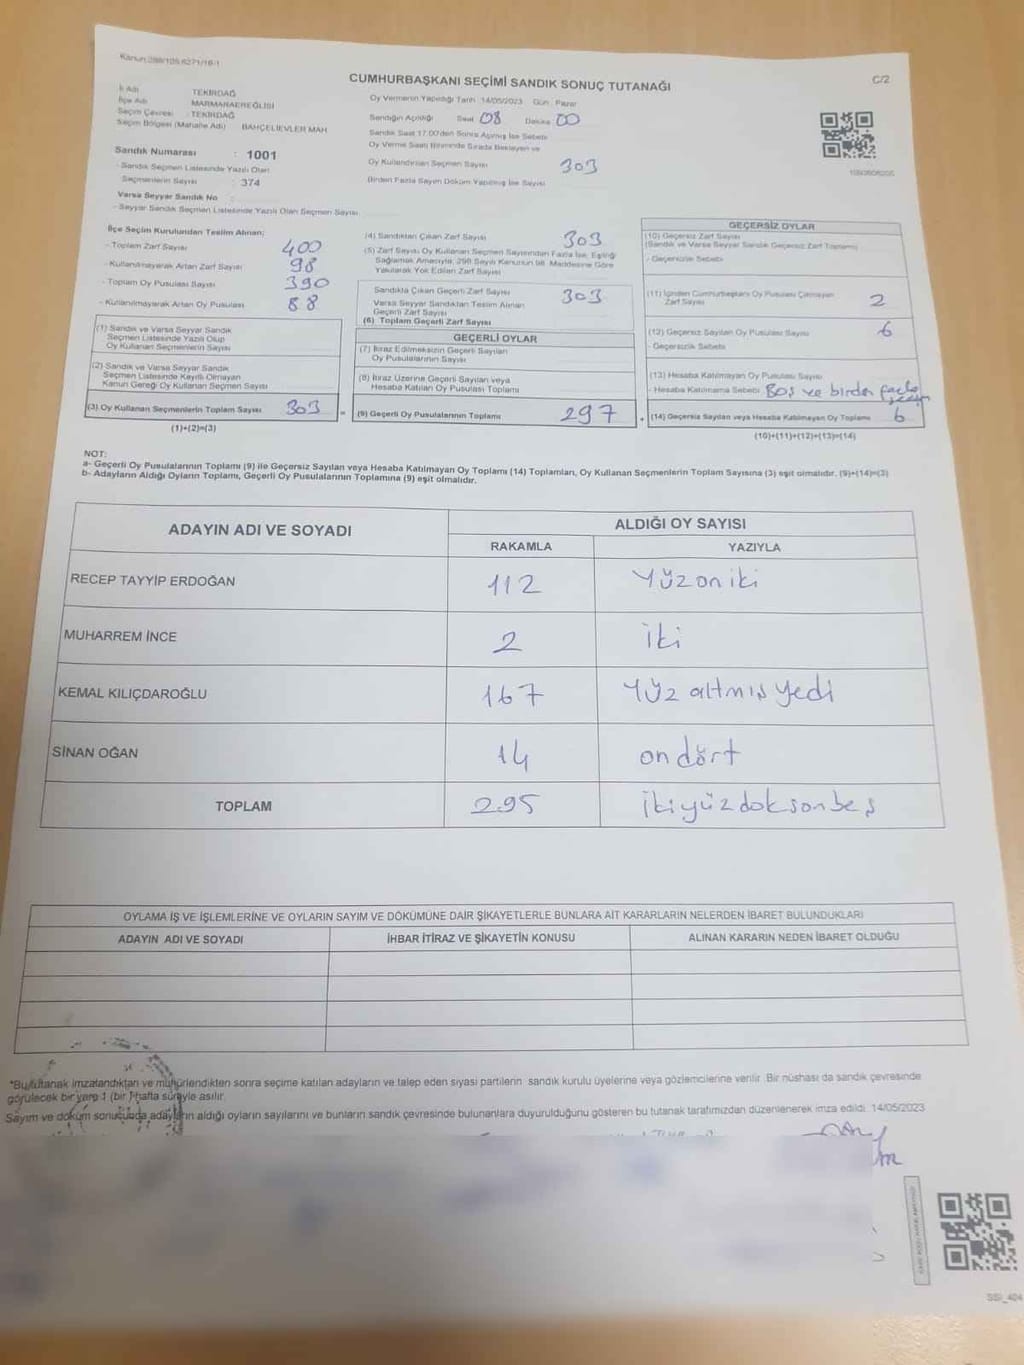 Kanun:298/105,6271/16-1
CUMHURBAŞKANI SEÇİMİ SANDIK SONUÇ TUTANAĞI
C/2
İl Adı TEKİRDAĞ
İlçe Adı MARMARAEREĞLİSİ
Seçim Çevresi : TEKİRDAĞ
Seçim Bölgesi (Mahalle Adı) BAHÇELİEVLER MAH
Oy Vermenin Yapıldığı Tarih 14/05/2023 Gün Pazar
Sandığın Açıldığı Saat 08 Dakika 00
Sandık Saat 17.00'den Sonra Açılmış İse Sebebi
Oy Verme Saati Bitiminde Sırada Bekleyen ve
Oy Kullandırılan Seçmen Sayısı 303
Birden Fazla Sayım Döküm Yapılmış İse Sayısı
Sandık Numarası : 1001
- Sandık Seçmen Listesinde Yazılı Olan
Seçmenlerin Sayısı : 374
Varsa Seyyar Sandık No
- Seyyar Sandık Seçmen Listesinde Yazılı Olan Seçmen Sayısı
İlçe Seçim Kurulundan Teslim Alınan;
- Toplam Zarf Sayısı 400
- Kullanılmayarak Artan Zarf Sayısı 98
- Toplam Oy Pusulası Sayısı 390
- Kullanılmayarak Artan Oy Pusulası 88
(1) Sandık ve Varsa Seyyar Sandık
Seçmen Listesinde Yazılı Olup
Oy Kullanan Seçmenlerin Sayısı
(2) Sandık ve Varsa Seyyar Sandık
Seçmen Listesinde Kayıtlı Olmayan
Kanun Gereği Oy Kullanan Seçmen Sayısı
(3) Oy Kullanan Seçmenlerin Toplam Sayısı 303
(1)+(2)=(3)
(4) Sandıktan Çıkan Zarf Sayısı 303
(5) Zarf Sayısı Oy Kullanan Seçmen Sayısından Fazla İse, Eşitliği
Sağlamak Amacıyla, 298 Sayılı Kanunun 98. Maddesine Göre
Yakılarak Yok Edilen Zarf Sayısı
Sandıkta Çıkan Geçerli Zarf Sayısı 303
Varsa Seyyar Sandıktan Teslim Alınan
Geçerli Zarf Sayısı
(6) Toplam Geçerli Zarf Sayısı
GEÇERLİ OYLAR
(7) İtiraz Edilmeksizin Geçerli Sayılan
Oy Pusulalarının Sayısı
(8) İtiraz Üzerine Geçerli Sayılan veya
Hesaba Katılan Oy Pusulası Toplamı
= (9) Geçerli Oy Pusulalarının Toplamı 297
GEÇERSİZ OYLAR
(10) Geçersiz Zarf Sayısı
(Sandık ve Varsa Seyyar Sandık Geçersiz Zarf Toplamı)
- Geçersizlik Sebebi
(11) İçinden Cumhurbaşkanı Oy Pusulası Çıkmayan
Zarf Sayısı 2
(12) Geçersiz Sayılan Oy Pusulası Sayısı 6
- Geçersizlik Sebebi
(13) Hesaba Katılmayan Oy Pusulası Sayısı
- Hesaba Katılmama Sebebi Boş ve birden fazla
+ (14) Geçersiz Sayılan veya Hesaba Katılmayan Oy Toplamı 6
(10)+(11)+(12)+(13)=(14)
NOT:
a- Geçerli Oy Pusulalarının Toplamı (9) ile Geçersiz Sayılan veya Hesaba Katılmayan Oy Toplamı (14) Toplamları, Oy Kullanan Seçmenlerin Toplam Sayısına (3) eşit olmalıdır. (9)+(14)=(3)
b- Adayların Aldığı Oyların Toplamı, Geçerli Oy Pusulalarının Toplamına (9) eşit olmalıdır.
ADAYIN ADI VE SOYADI
ALDIĞI OY SAYISI
RAKAMLA YAZIYLA
RECEP TAYYİP ERDOĞAN 112 Yüzoniki
MUHARREM İNCE 2 iki
KEMAL KILIÇDAROĞLU 167 Yüz altmış yedi
SİNAN OĞAN 14 on dört
TOPLAM 295 ikiyüzdoksonbeş
OYLAMA İŞ VE İŞLEMLERİNE VE OYLARIN SAYIM VE DÖKÜMÜNE DAİR ŞİKAYETLERLE BUNLARA AİT KARARLARIN NELERDEN İBARET BULUNDUKLARI
ADAYIN ADI VE SOYADI İHBAR İTİRAZ VE ŞİKAYETİN KONUSU ALINAN KARARIN NEDEN İBARET OLDUĞU
*Bu tutanak imzalandıktan ve mühürlendikten sonra seçime katılan adayların ve talep eden siyasi partilerin sandık kurulu üyelerine veya gözlemcilerine verilir. Bir nüshası da sandık çevresinde
görülecek bir yere 1 (bir) hafta süreyle asılır.
Sayım ve döküm sonucunda adayların aldığı oyların sayılarını ve bunların sandık çevresinde bulunanlara duyurulduğunu gösteren bu tutanak tarafımızdan düzenlenerek imza edildi. 14/05/2023
SSI_404